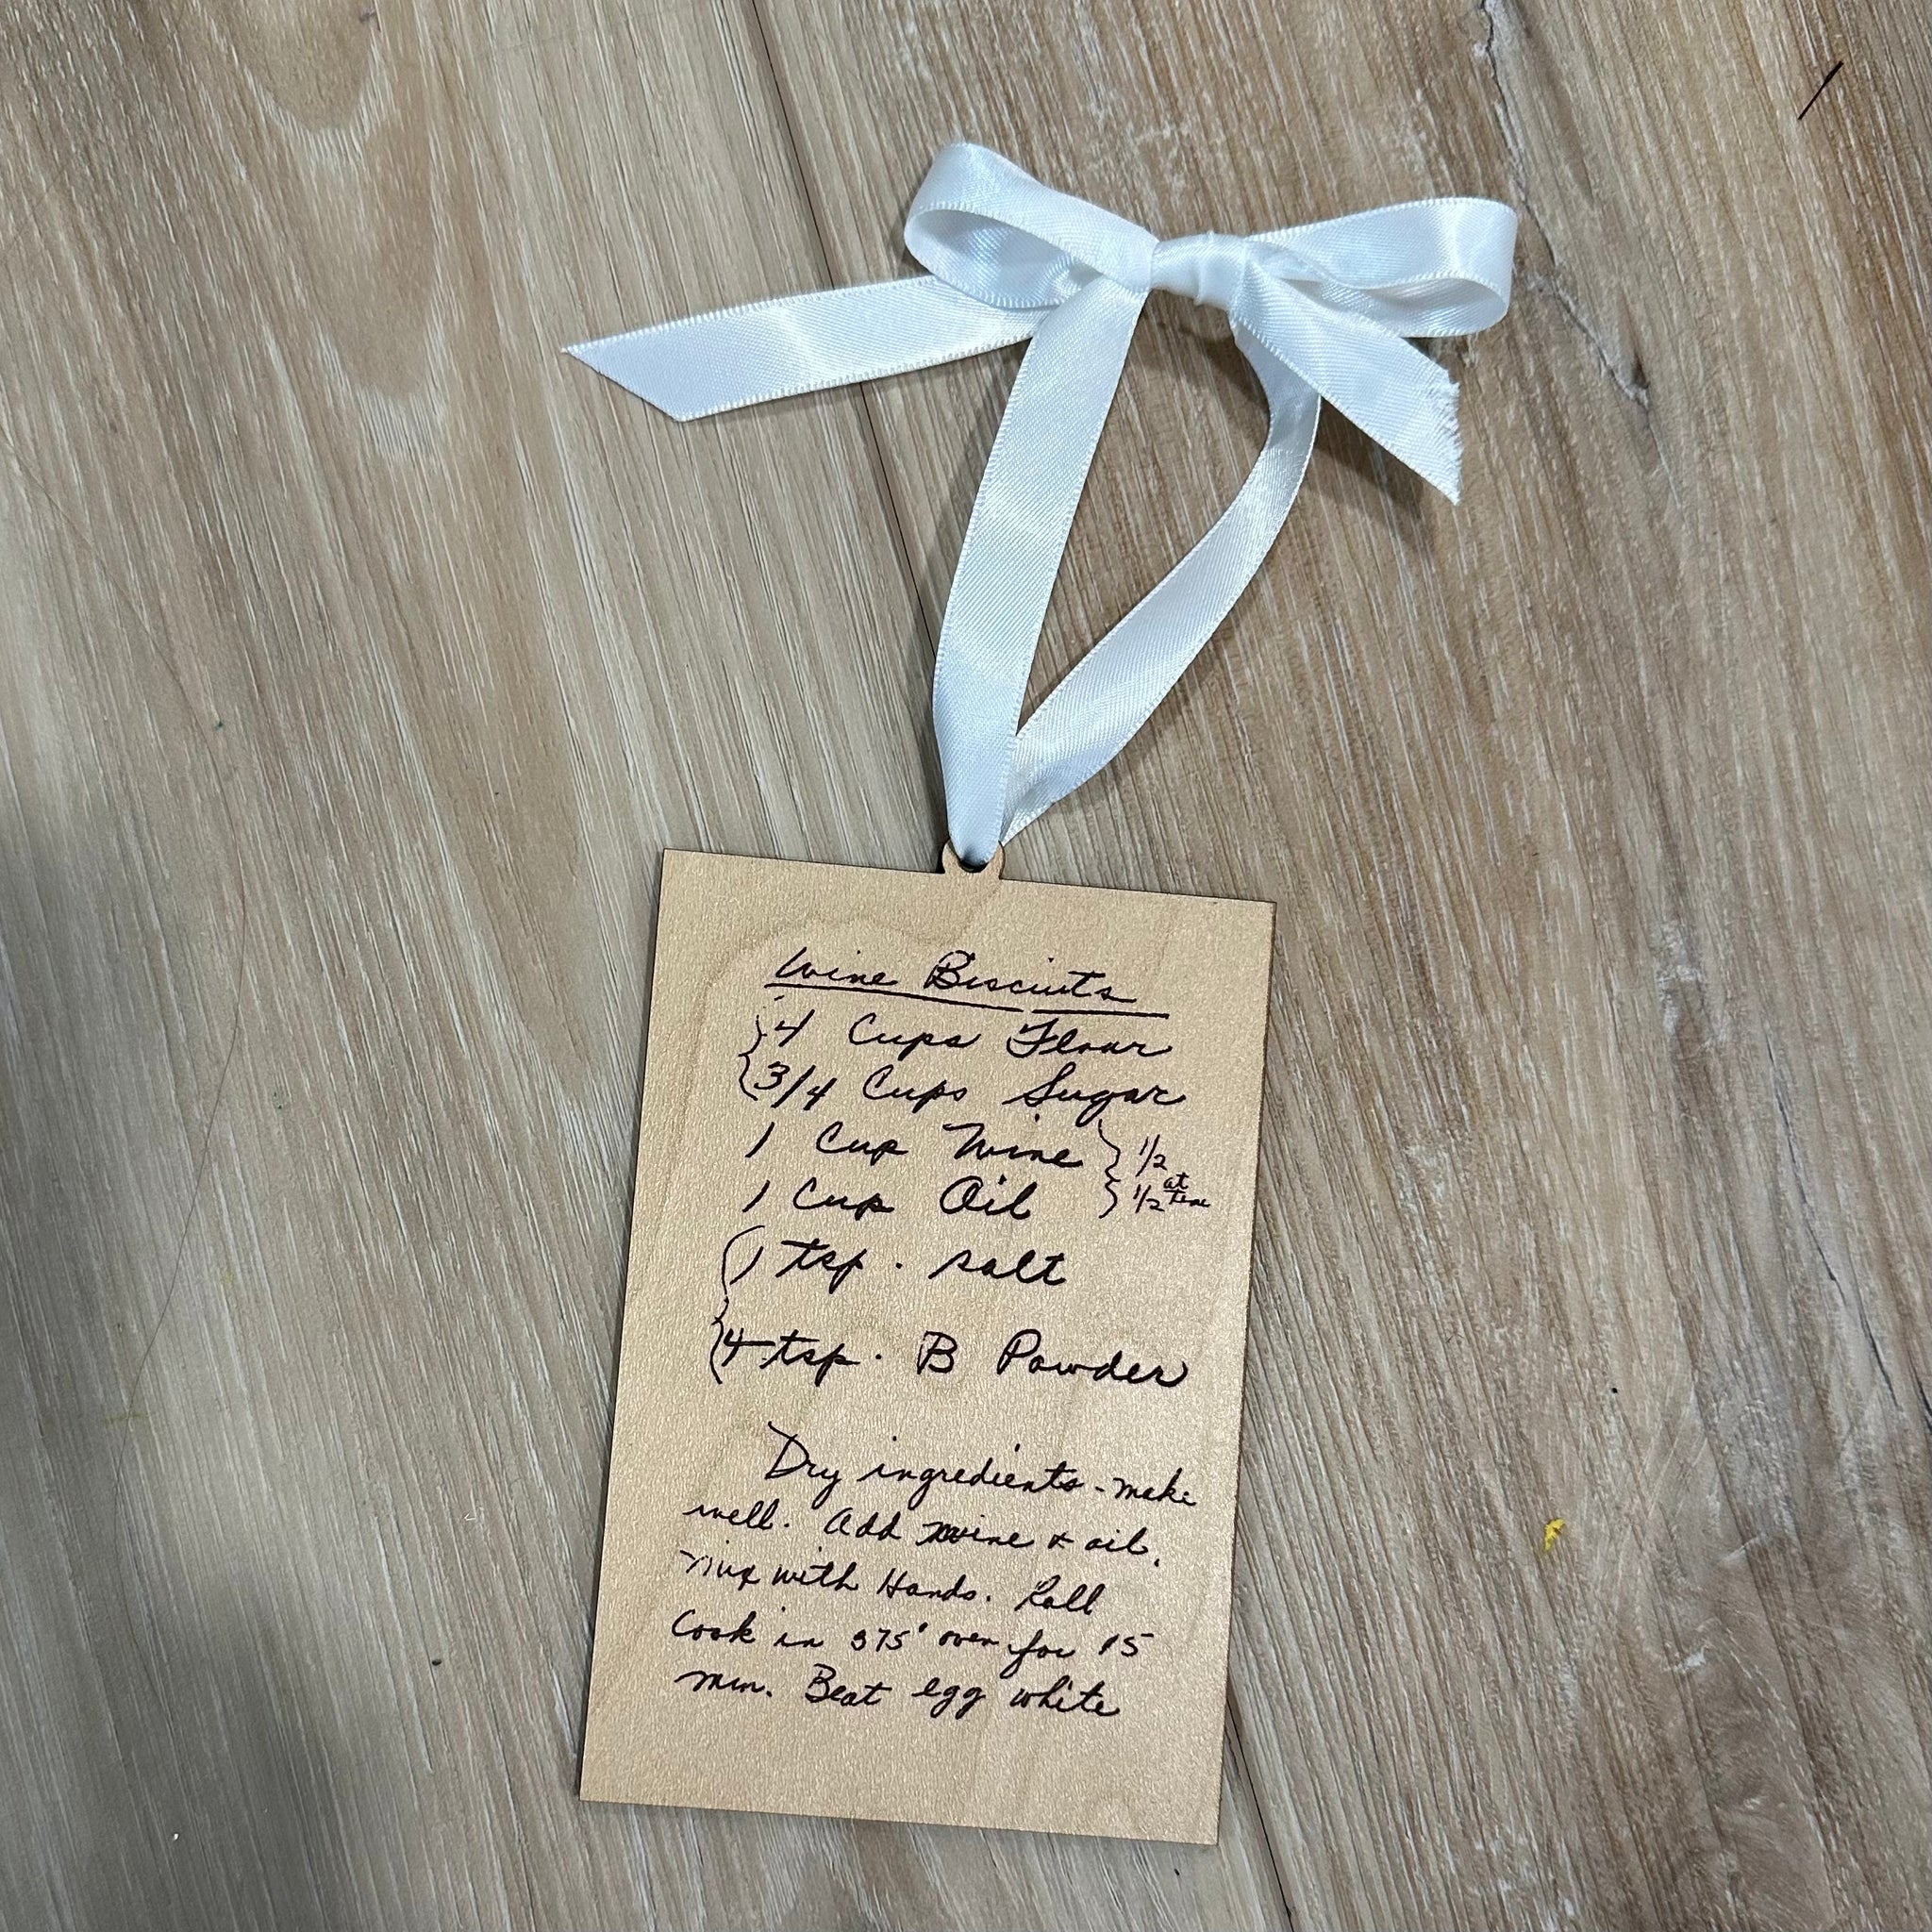 Wine Biscuits
4 Cups Flour
3/4 Cups Sugar
1 Cup Wine } 1/2
1 Cup Oil } 1/2 at time
1 tsp. salt
4 tsp. B Powder
Dry ingredients - make
well. Add wine & oil.
mix with Hands. Roll
Cook in 375° oven for 15
min. Beat egg white